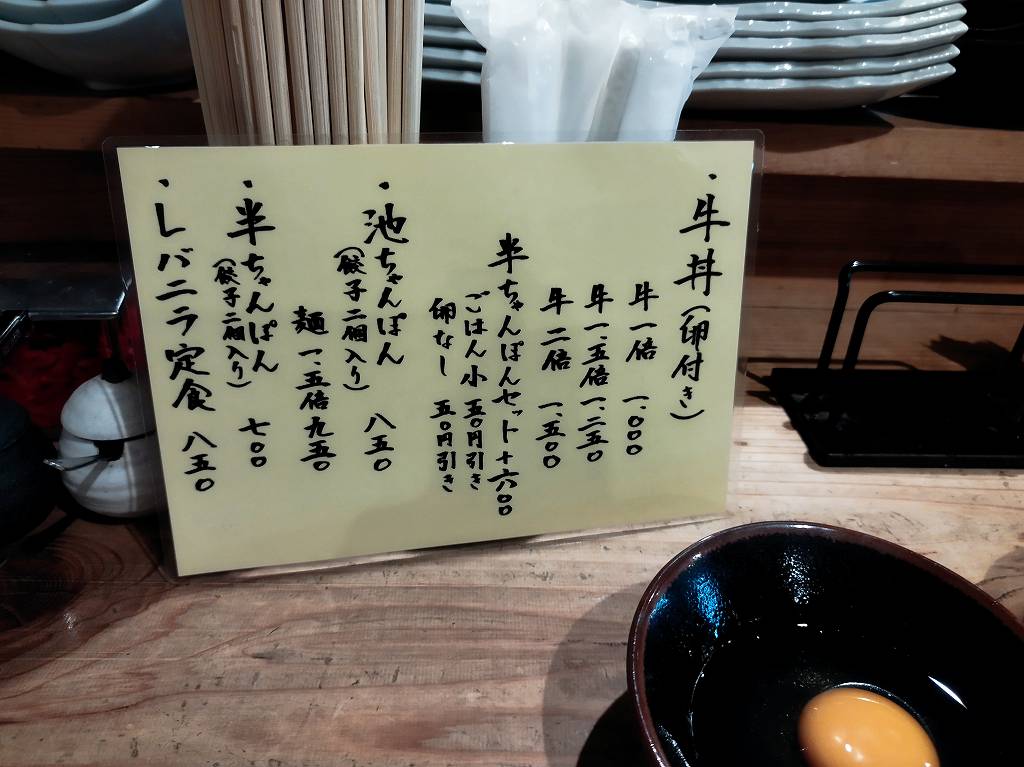 ・牛丼(卵付き)
牛一倍 一、〇〇〇
牛一、五倍 一、二五〇
牛二倍 一、五〇〇
半ちゃんぽんセット+六〇〇
ごはん小 五〇円引き
卵なし 五〇円引き
・池ちゃんぽん 八五〇
(餃子二個入り)
麺一、五倍 九五〇
・半ちゃんぽん 七〇〇
(餃子二個入り)
・レバニラ定食 八五〇